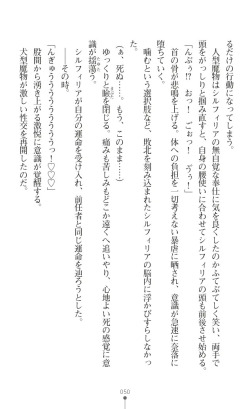 るだけの行動になってしまう。
　人型魔物はシルフィリアの無自覚な奉仕に気を良くしたのかふてぶてしく笑い、両手で
頭をがっしりと掴み直すと、自身の腰使いに合わせてシルフィリアの頭も前後させ始める。
「んぶぅ!?　おっ！　ごぉっ！　どぅっ！」
　首の骨が悲鳴を上げる。体への負担を一切考えない暴虐に晒され、意識が急速に奈落に
堕ちていく。
　噛むという選択肢など、敗北を刻み込まれたシルフィリアの脳内に浮かびすらしなかっ
た。
（ぁ、死ぬ……。もう、このまま……）
　ゆっくりと瞼を閉じる。痛みも苦しみもどこか遠くへ追いやり、心地よい死の感覚に意
識が揺蕩う。
　シルフィリアが自分の運命を受け入れ、前任者と同じ運命を辿ろうとした。
　――その時。
「んぎゅううううううううっ！♡♡♡」
　股間から湧き上がる激悦に意識が覚醒する。
　犬型魔物が激しい性交を再開したのだ。
050